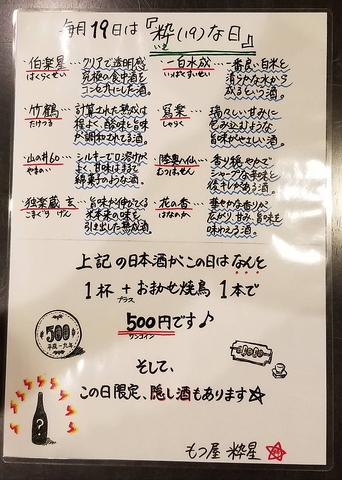 毎月19日は『粋(19)な日』
伯楽星…クリアで透明感
はくらくせい
究極の食中酒を
コンセプトにした酒。
一白水成…一番良い白米を
いっぱくすいせい
清らかな水から
成るという酒。
竹鶴…計算された熟成は
たけつる
程よく、酸味と旨味
が調和されてる酒。
寫楽…瑞々しい甘みに
しゃらく
包み込むような
旨味がやさしい酒。
山の井60…シルキーで口溶けがよ
やまのい
く、甘味はまるで
綿菓子のような酒。
陸奥八仙…香り穏やかで
むつはっせん
シャープな辛味を
後キレがある酒。
独楽蔵 玄…旨味が伸びてくる
こまぐら げん
米本来の味を
引き出した熟成酒。
花の香…華やかな香りが
はなのか
広がり、甘み、旨味を
味わえる酒。
上記の日本酒がこの日はなんと
1杯+おまかせ焼鳥1本で
プラス
500円です♪
ワンコイン
500
平成一九年
そして、
この日限定、隠し酒もあります☆
?
もつ屋 粋星